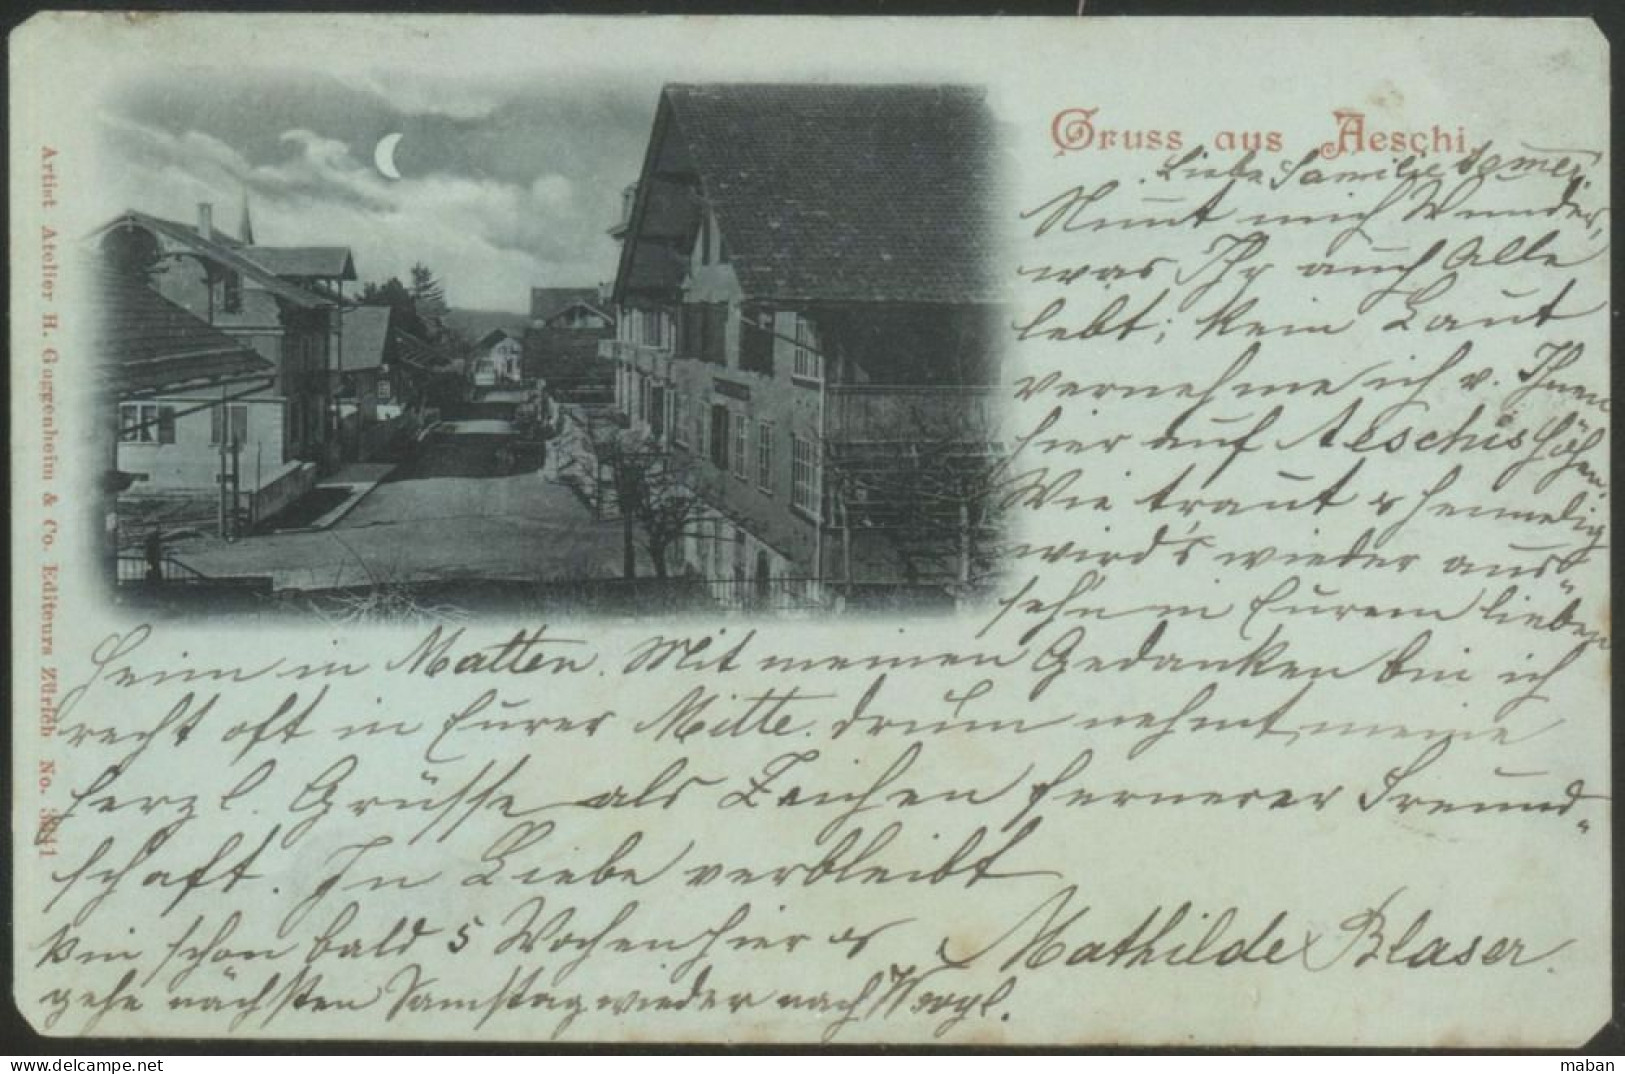 Gruss aus Aeschi.
Liebe Familie
Nimmt mich Wunder,
was Ihr auch Alle
lebt; kein Laut
vernehme ich v. Ihnen
hier auf Aeschis Höhen.
Wie traut & heimelig
wird's wieder aus=
seh'n in Eurem lieben
Heim in Matten. Mit meinen Gedanken bin ich
recht oft in Eurer Mitte. drum nehmt meine
herzl. Grüsse als Zeichen fernerer Freund=
schaft. In Liebe verbleibt
Bin schon bald 5 Wochen hier &
Mathilde Blaser.
gehe nächsten Samstag wieder nach
Artist Atelier H. Guggenheim & Co. Editeurs Zürich No. 3241
maban